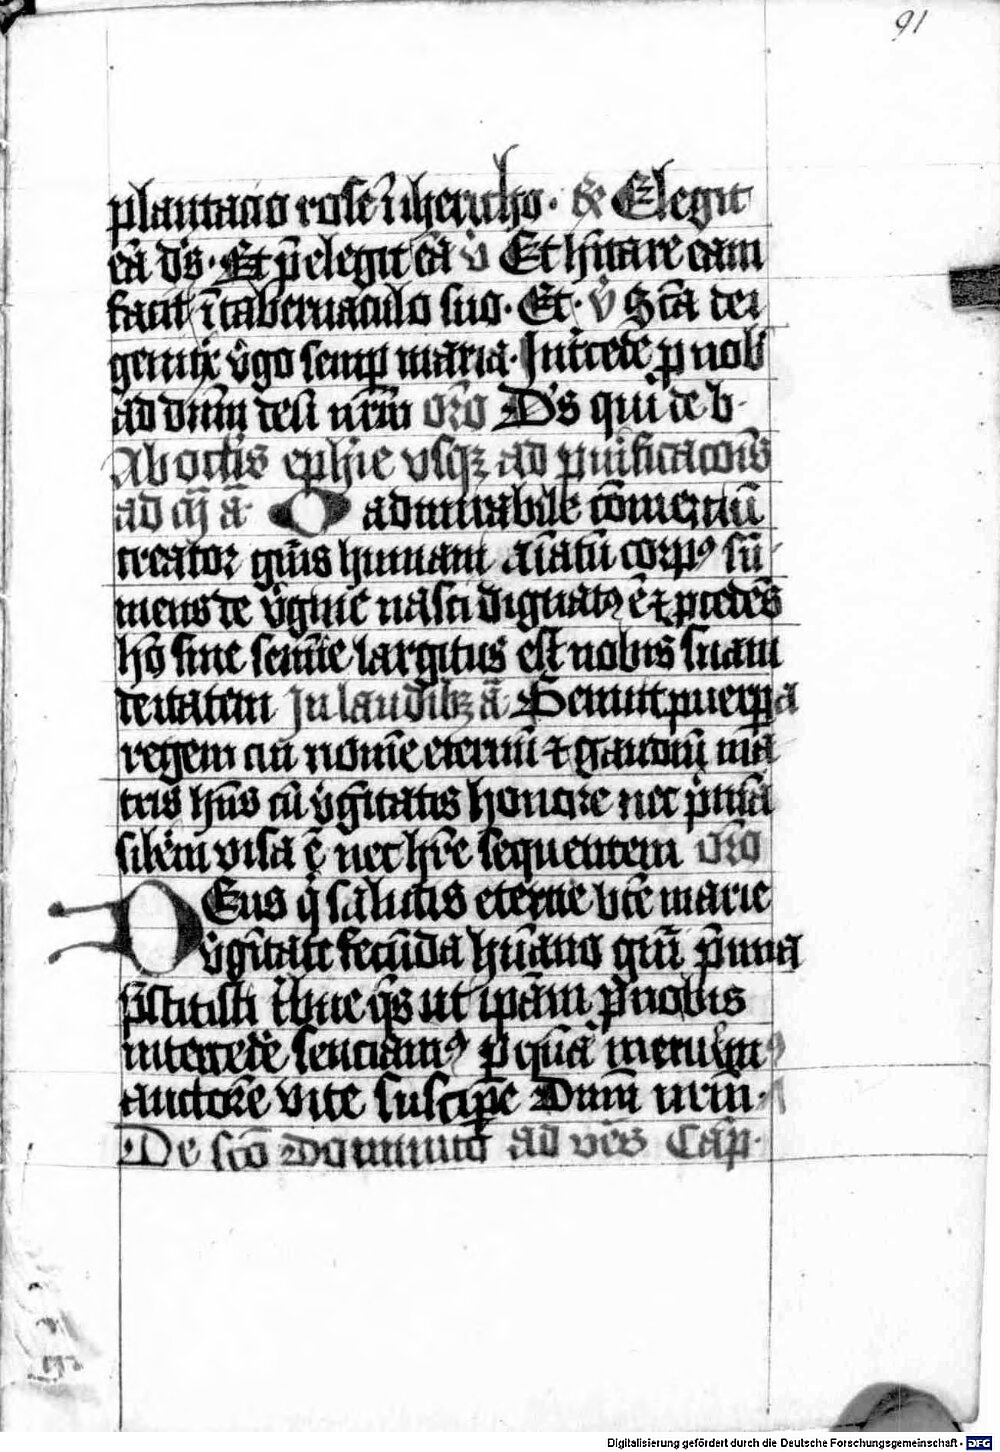 91
plantacio rose ī ihericho. R̃ Elegit
eā d̄s. Et p̄elegit eā v̄ Et h̄itare eam
facit ī tabernaculo suo. Et. v̄ Sc̄a dei
genitx v̄go semp maria. Int̄cede p nob̄
ad dn̄m deū nr̄m or̄o D̄s qui de b.
Ab octīs eph̄ie vsqꝫ ad purificacōis
ad ā. O admirabile cōmerciū
creator gn̄is humani aīatū corpꝰ sū
mens de v̄gine nasci dignatꝰ ē ⁊ p̄cedēs
hō sine semīe largitus est nobis suam
deitatem In laudibꝫ ā Genuit puerpa
regem cui nomē eternū ⁊ gaudiū ma
tris hn̄s cū v̄gītatis honore nec p̄mā
silēm visa ē nec hr̄e sequentem or̄o
Deus q̄ salutis eterne bt̄e marie
v̄gītate fecūda hūano gn̄i p̄mia
p̄stitisti t̄bue q̄s ut ip̄am p̄ nobis
intercedē senciamꝰ p quā meruimꝰ
auctorē vite suscipe dn̄m nr̄m.
De sc̄o Dominico ad ves̄ Cap̄.
Digitalisierung gefördert durch die Deutsche Forschungsgemeinschaft - DFG